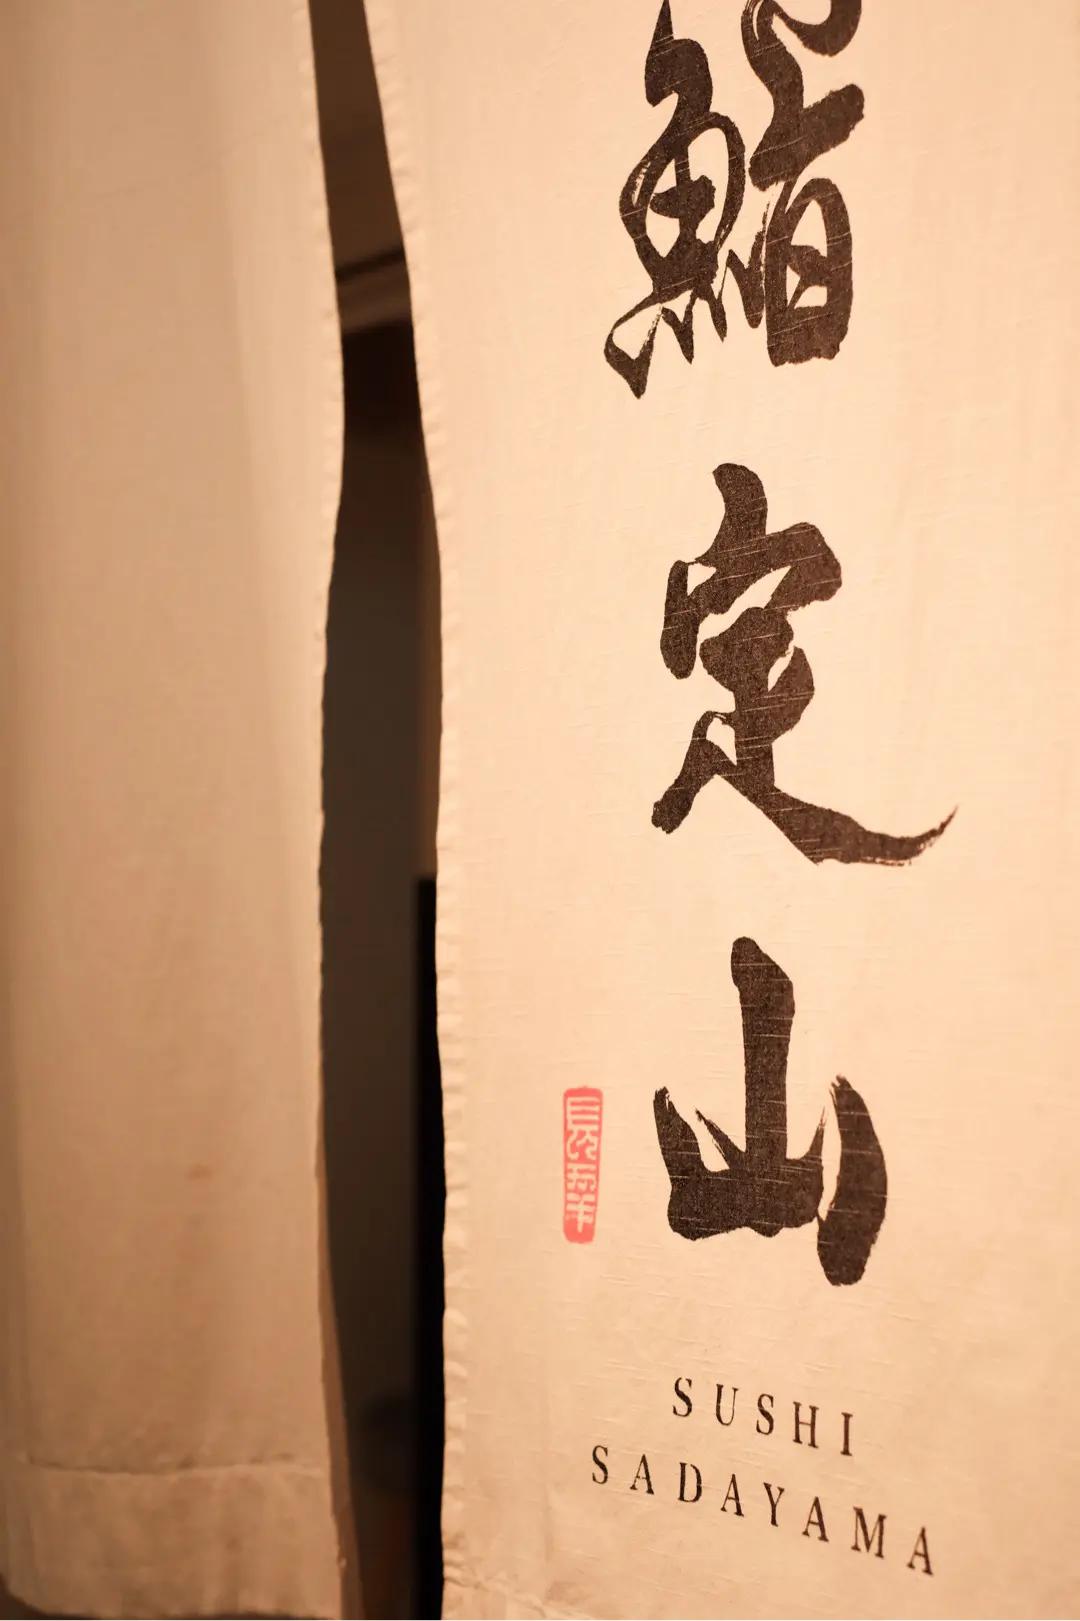 鮨定山
SUSHI
SADAYAMA